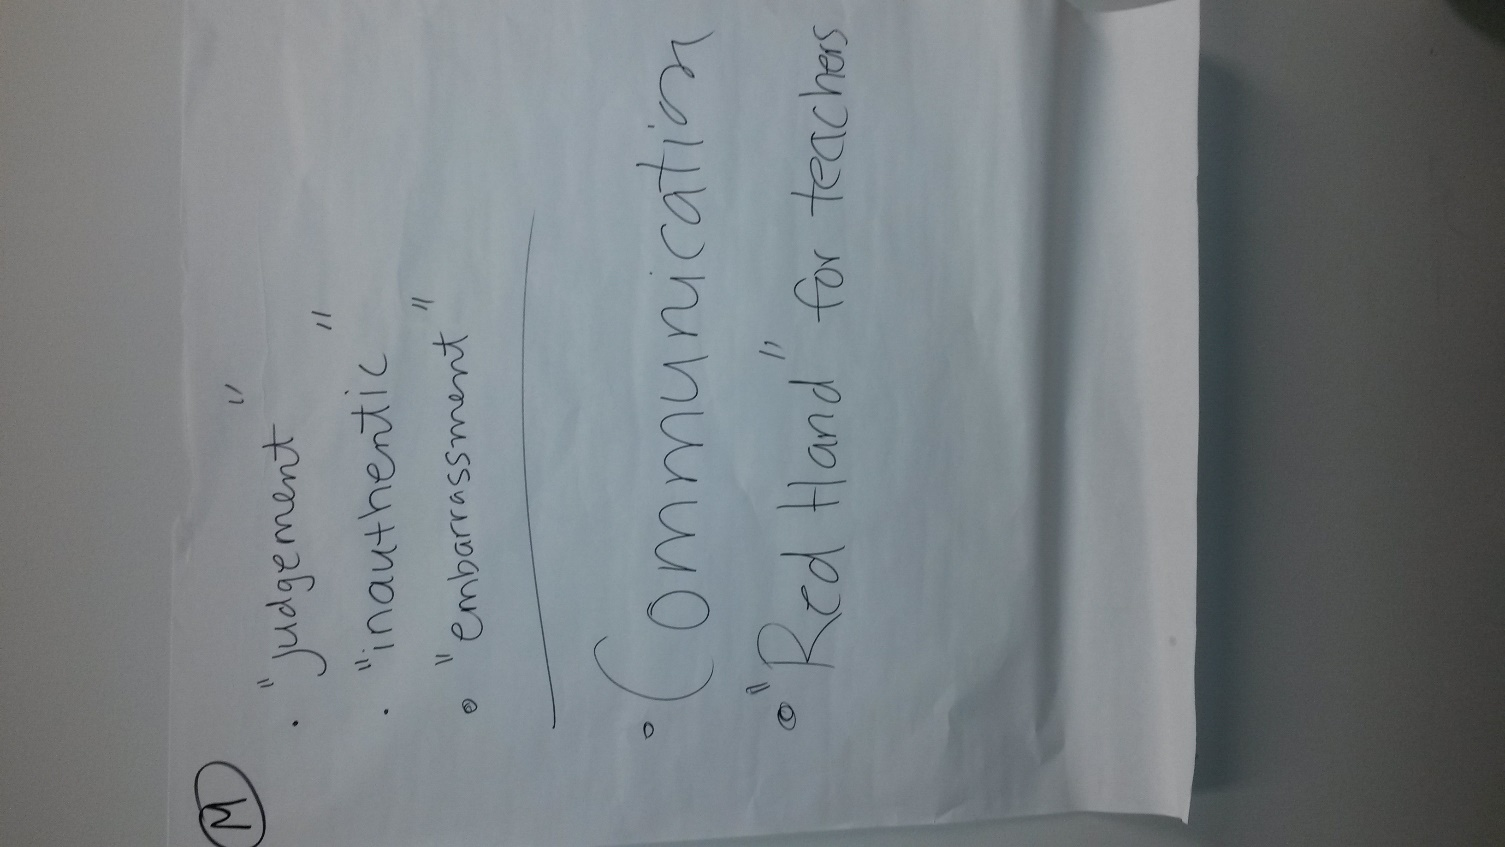 M
· "judgement"
· "inauthentic"
· "embarrassment"
· Communication
· "Red Hand" for teachers